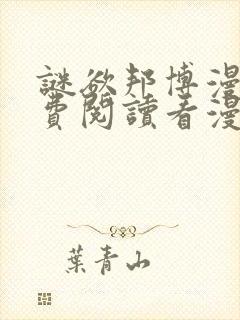 謎欲邦博漫
費閱讀看漫
葉青山